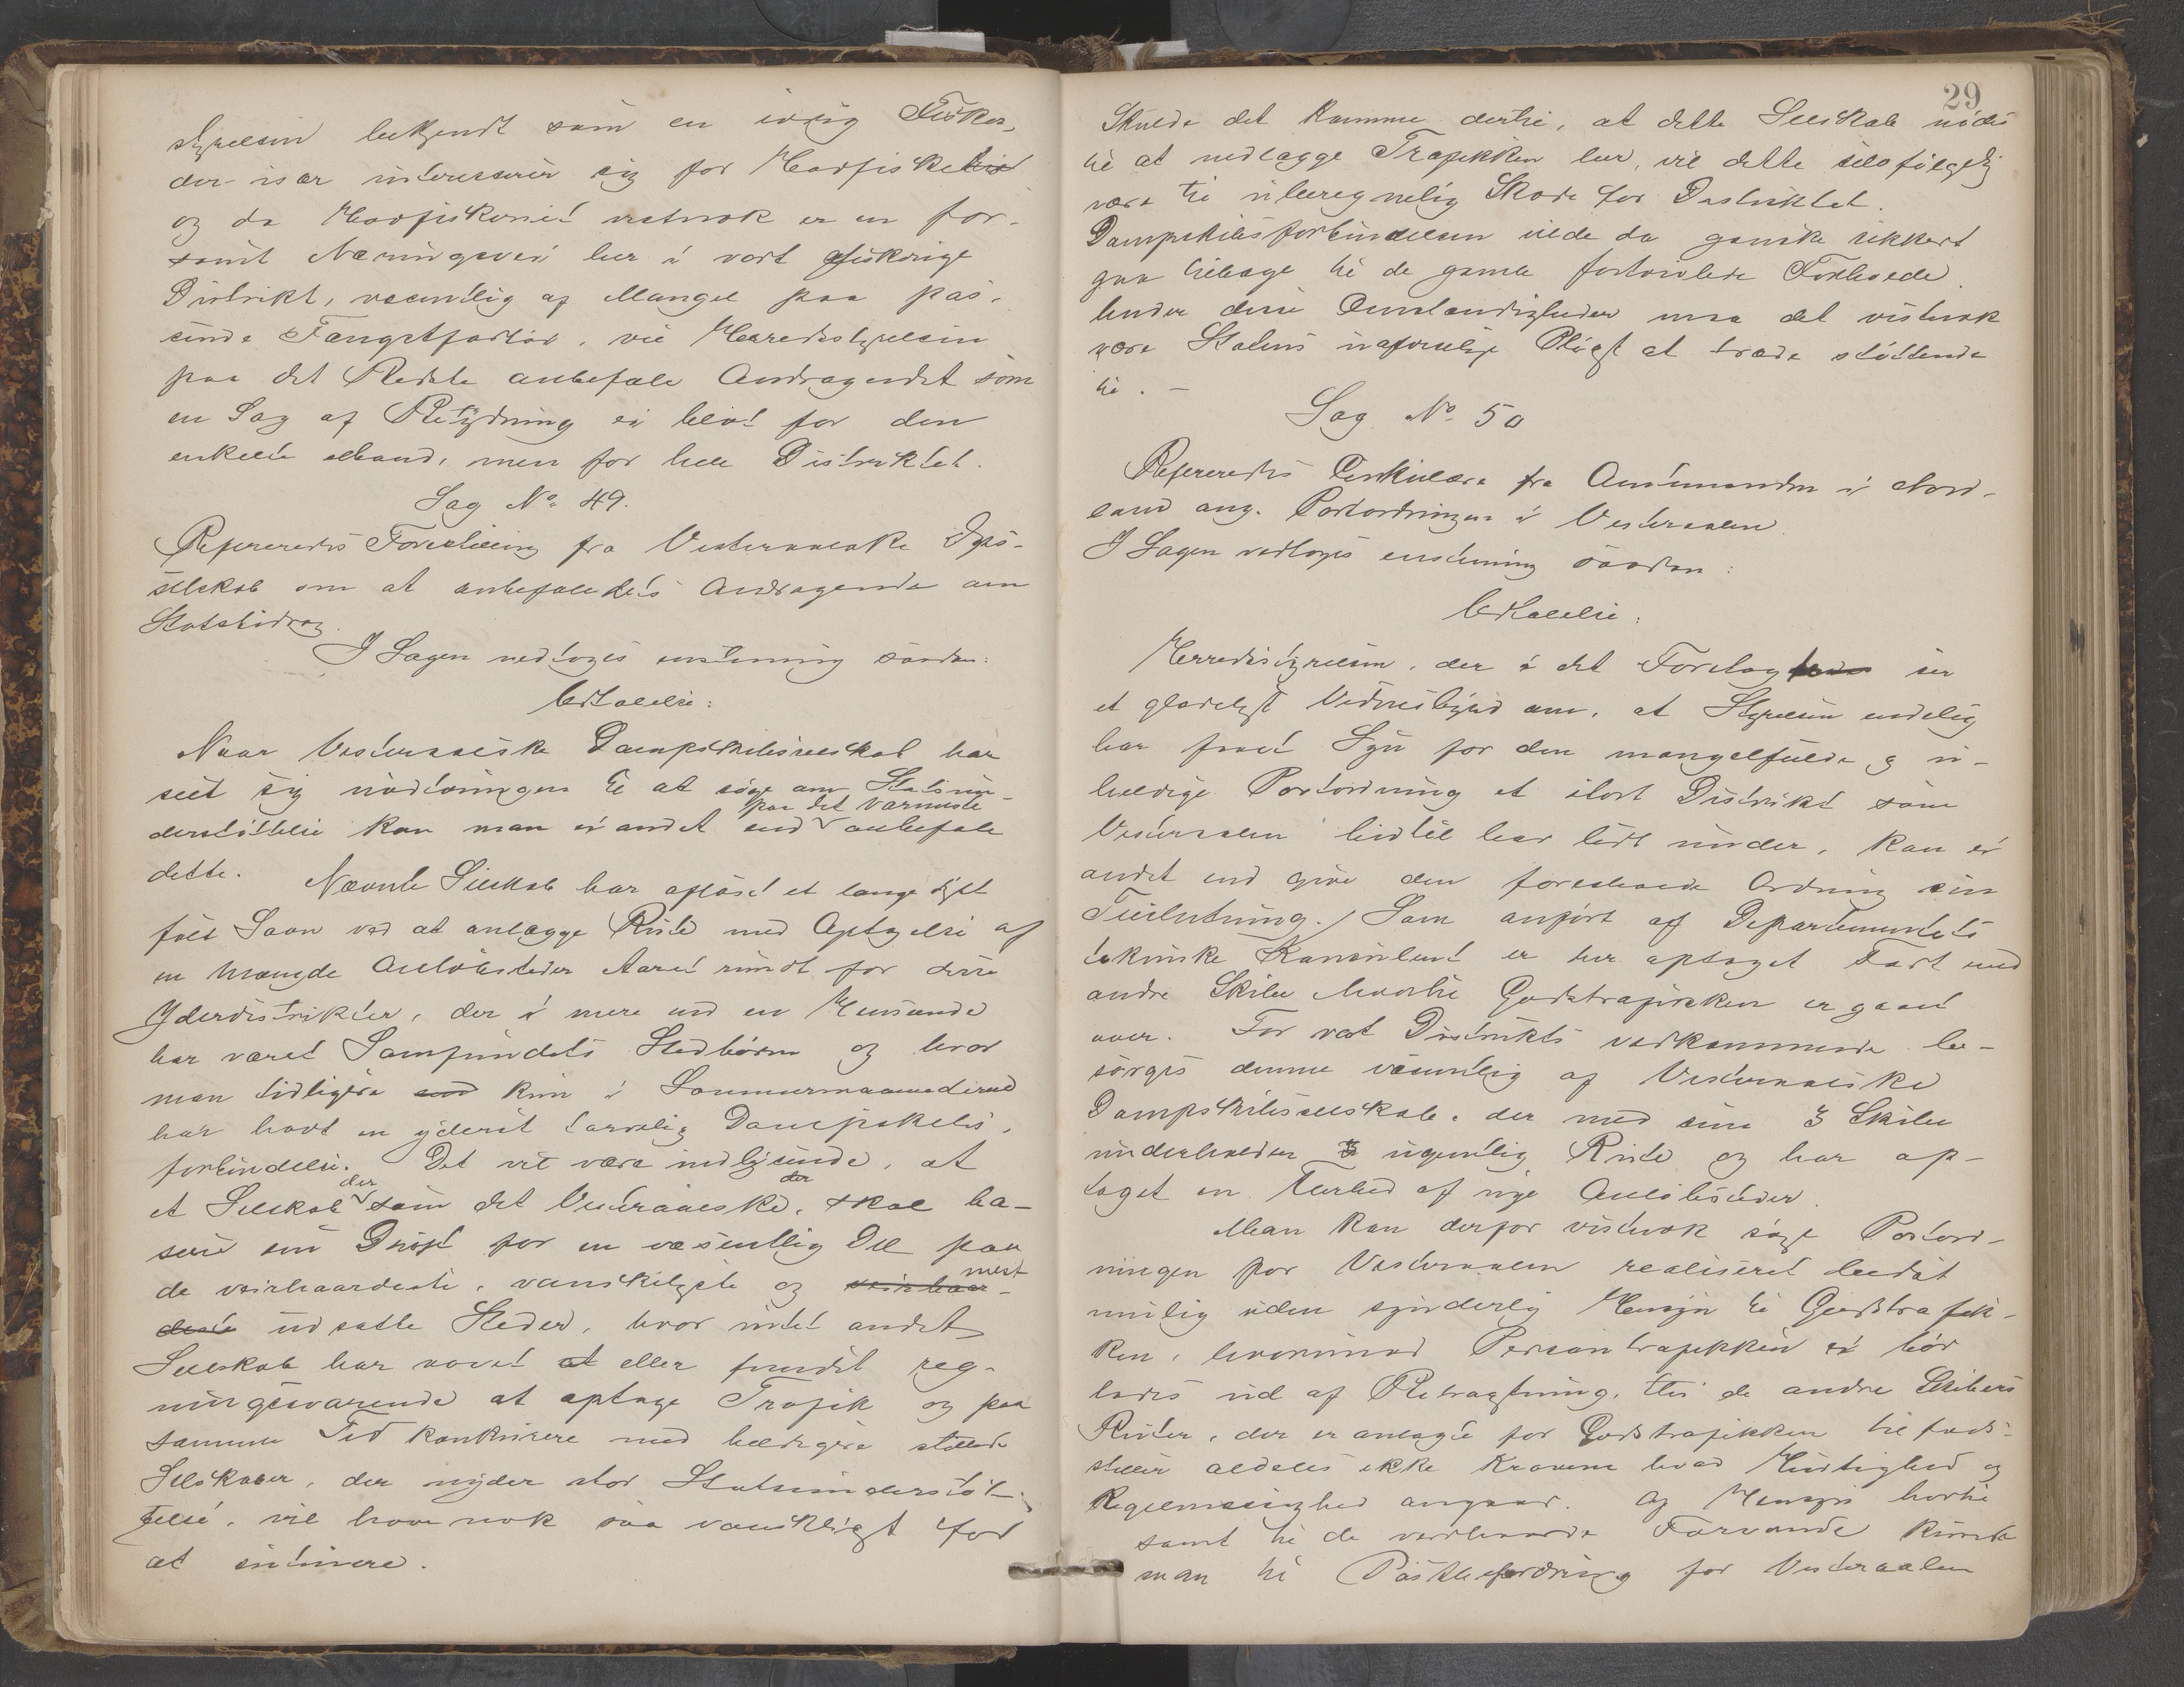 styrelsen bekjendt som en ivrig Fisker,
der især interesserer sig for Havfisket
og da Havfiskeriet vistnok er en for-
sømt Næringsvei her i vort fiskerige
Distrikt, væsentlig af Mangel paa pas-
sende Fangstfartøi, vil Herredsstyrelsen
paa det Bedste anbefale Andragendet som
en Sag af Betydning ei blot for den
enkelte Mand, men for hele Distriktet.
Sag No. 49.
Refereredes Forestilling fra Vesteraalske Dps-
selskab om at anbefale dets Andragende om
Statsbidrag.
I Sagen vedtoges enstemmig saadan:
Udtalelse:
Naar Vesteraalske Dampskibsselskab har
seet sig nødtvungen til at søge om Statsun-
derstøttelse kan man ei andet end paa det varmeste anbefale
dette. Nævnte Selskab har afløst et længe dybt
følt Savn ved at anlægge Rute med Optagelse af
en Mængde Anløbssteder Aaret rundt for disse
Yderdistrikter, der i mere end en Henseende
har været Samfundets Stedbørn og hvor
man tidligere kun i Sommermaanederne
har havt en yderst tarvelig Dampskibs-
forbindelse. Det vil være indlysende, at
et Selskab der som det Vesteraalske, der skal ba-
sere sin Drift for en væsentlig Del paa
de veirhaardeste, vanskeligste og mest
udsatte Steder, hvor intet andet
Selskab har vovet eller fundet reg-
ningssvarende at optage Trafik og paa
samme Tid konkurrere med heldigere stillede
Selskaber, der nyder stor Statsunderstøt-
telse, vil have nok saa vanskeligt for
at
29
Skulde det komme dertil, at dette Selskab nødes
til at nedlægge Trafikken her, vil dette selvfølgelig
være til uberegnelig Skade for Distriktet.
Dampskibsforbindelsen vilde da ganske sikkert
gaa tilbage til de gamle fortvivlede Forholde.
Under disse Omstændigheder maa det vistnok
være Statens Pligt at træde støttende
til. –
Sag No. 50
Refereredes Cirkulære fra Amtmanden i Nord-
land ang. Postordningen i Vesteraalen.
I Sagen vedtoges enstemmig saadan:
Udtalelse:
Herredsstyrelsen, der i det Forelag ser
et glædeligt Vidnesbyrd om, at Styrelsen endelig
har faaet Syn for den mangelfulde og u-
heldige Postordning et stort Distrikt som
Vesteraalen hidtil har lidt under, kan ei
andet end give den foreslaaede Ordning sin
Tilslutning. / Som anført af Departementets
tekniske Konsulent er her optaget Fart med
andre Skibe hvortil Godstrafikken er gaaet
over. For vort Distrikts vedkommende be-
sørges denne væsentlig af Vesteraalske
Dampskibsselskab, der med sine 3 Skibe
underholder ugentlig Rute og har op-
taget en Flerhed af nye Anløbssteder.
Man kan derfor vistnok søge Postord-
ningen for Vesteraalen realiseret bedst
mulig uden synderlig Hensyn til Godstrafik-
ken, hvorimod Persontrafikken ei bør
lades ud af Betragtning, thi de andre Skibers
Ruter, der er anlagte for Godstrafikken tilfreds-
stiller aldeles ikke Kravene hvad Hurtighed og
Regelmæssighed angaar. Af Hensyn hertil
samt til de veirhaarde Farvande kunde
man til Postbefordring for Vesteraalen